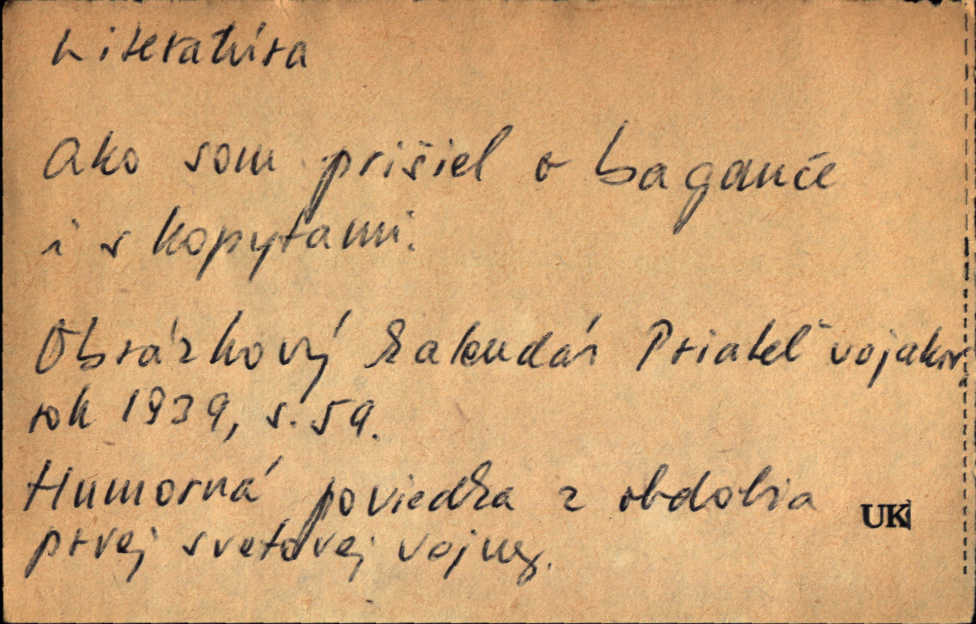 Literatúra
Ako som prišiel o baganče
i s kopytami.
Obrázkový kalendár Priateľ vojakov,
rok 1939, s. 59.
Humorná poviedka z obdobia
prvej svetovej vojny.
UK